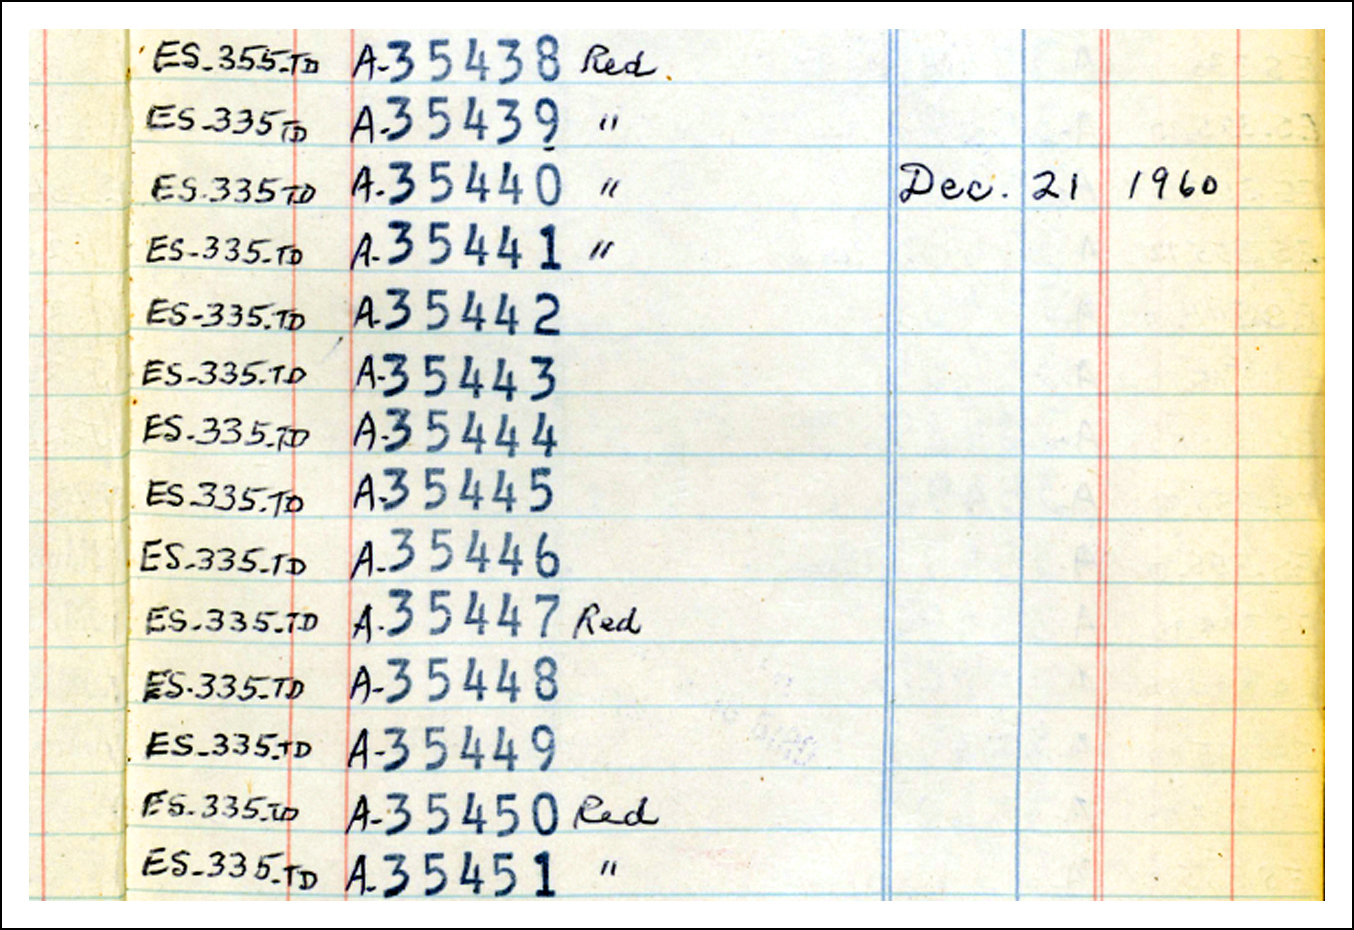 ES-355-TD A-35438 Red
ES-335TD A-35439 "
ES-335TD A-35440 " Dec. 21 1960
ES-335-TD A-35441 "
ES-335-TD A-35442
ES-335-TD A-35443
ES-335-TD A-35444
ES-335-TD A-35445
ES-335-TD A-35446
ES-335-TD A-35447 Red
ES-335-TD A-35448
ES-335-TD A-35449
ES-335-TD A-35450 Red
ES-335-TD A-35451 "